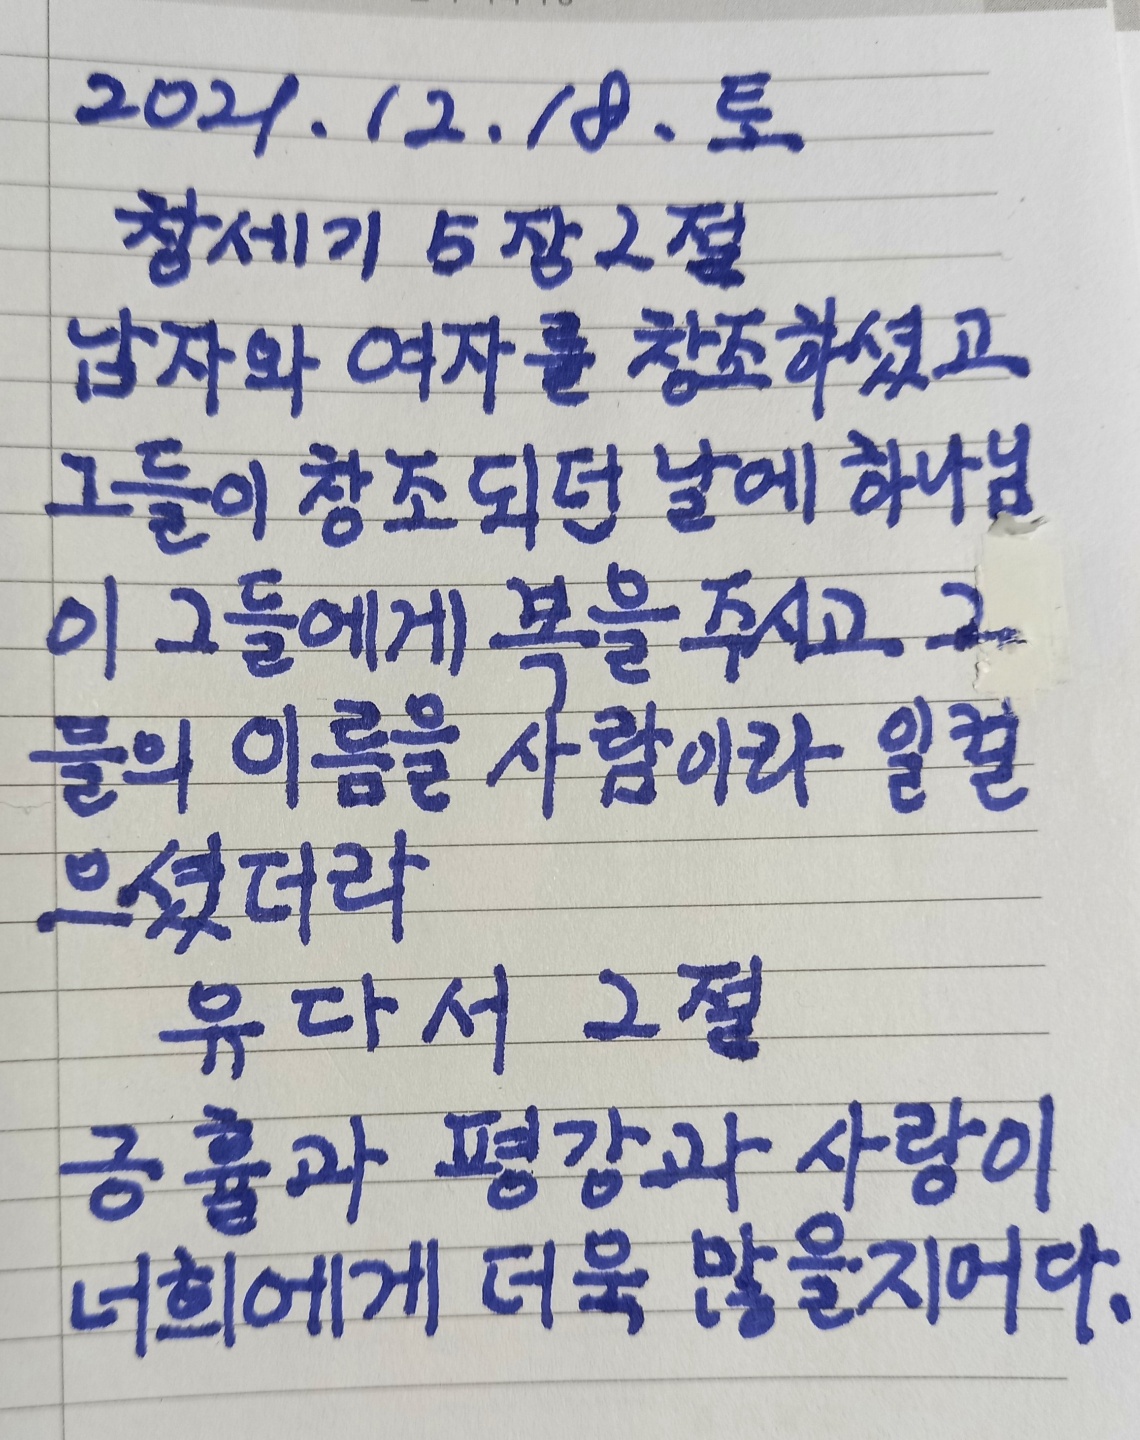 2021.12.18.토
창세기 5장 2절
남자와 여자를 창조하셨고
그들이 창조되던 날에 하나님
이 그들에게 복을 주시고 그
들의 이름을 사람이라 일컬
으셨더라
유다서 2절
긍휼과 평강과 사랑이
너희에게 더욱 많을지어다.